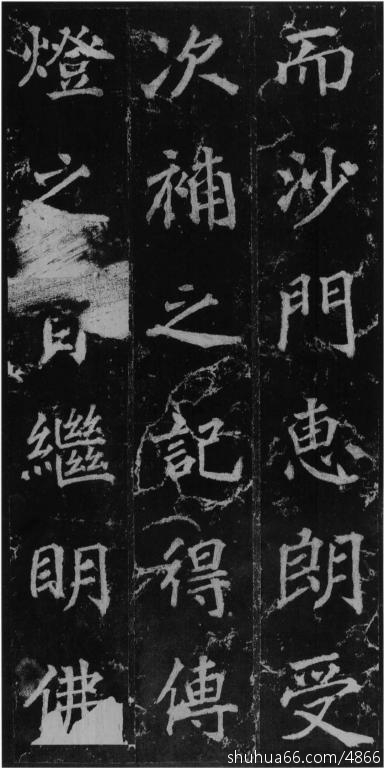 而沙門惠朗受
次補之記得傳
燈之日繼明佛
shuhua66.com/4866